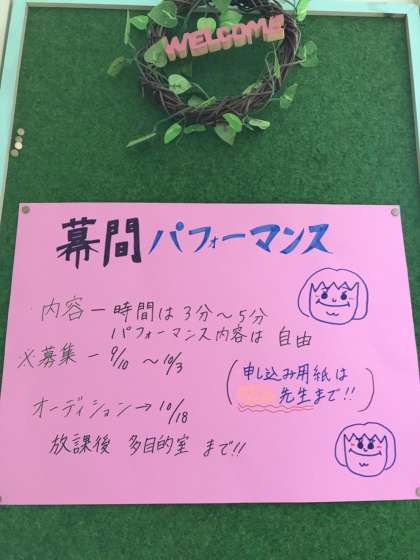 WELCOME
幕間パフォーマンス
内容ー時間は3分～5分
パフォーマンス内容は自由
※募集ー9/10～10/3
(申し込み用紙は
先生まで!!)
オーディション→10/18
放課後 多目的室 まで!!